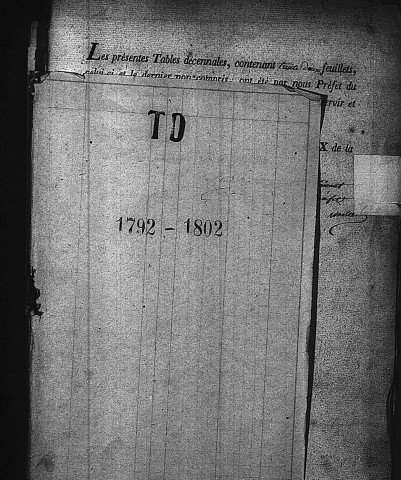 Les présentes Tables décennales, contenant feuillets,
celui-ci et le dernier non compris, ont été par nous Préfet du
ervir et
X de la
TD
1792 - 1802